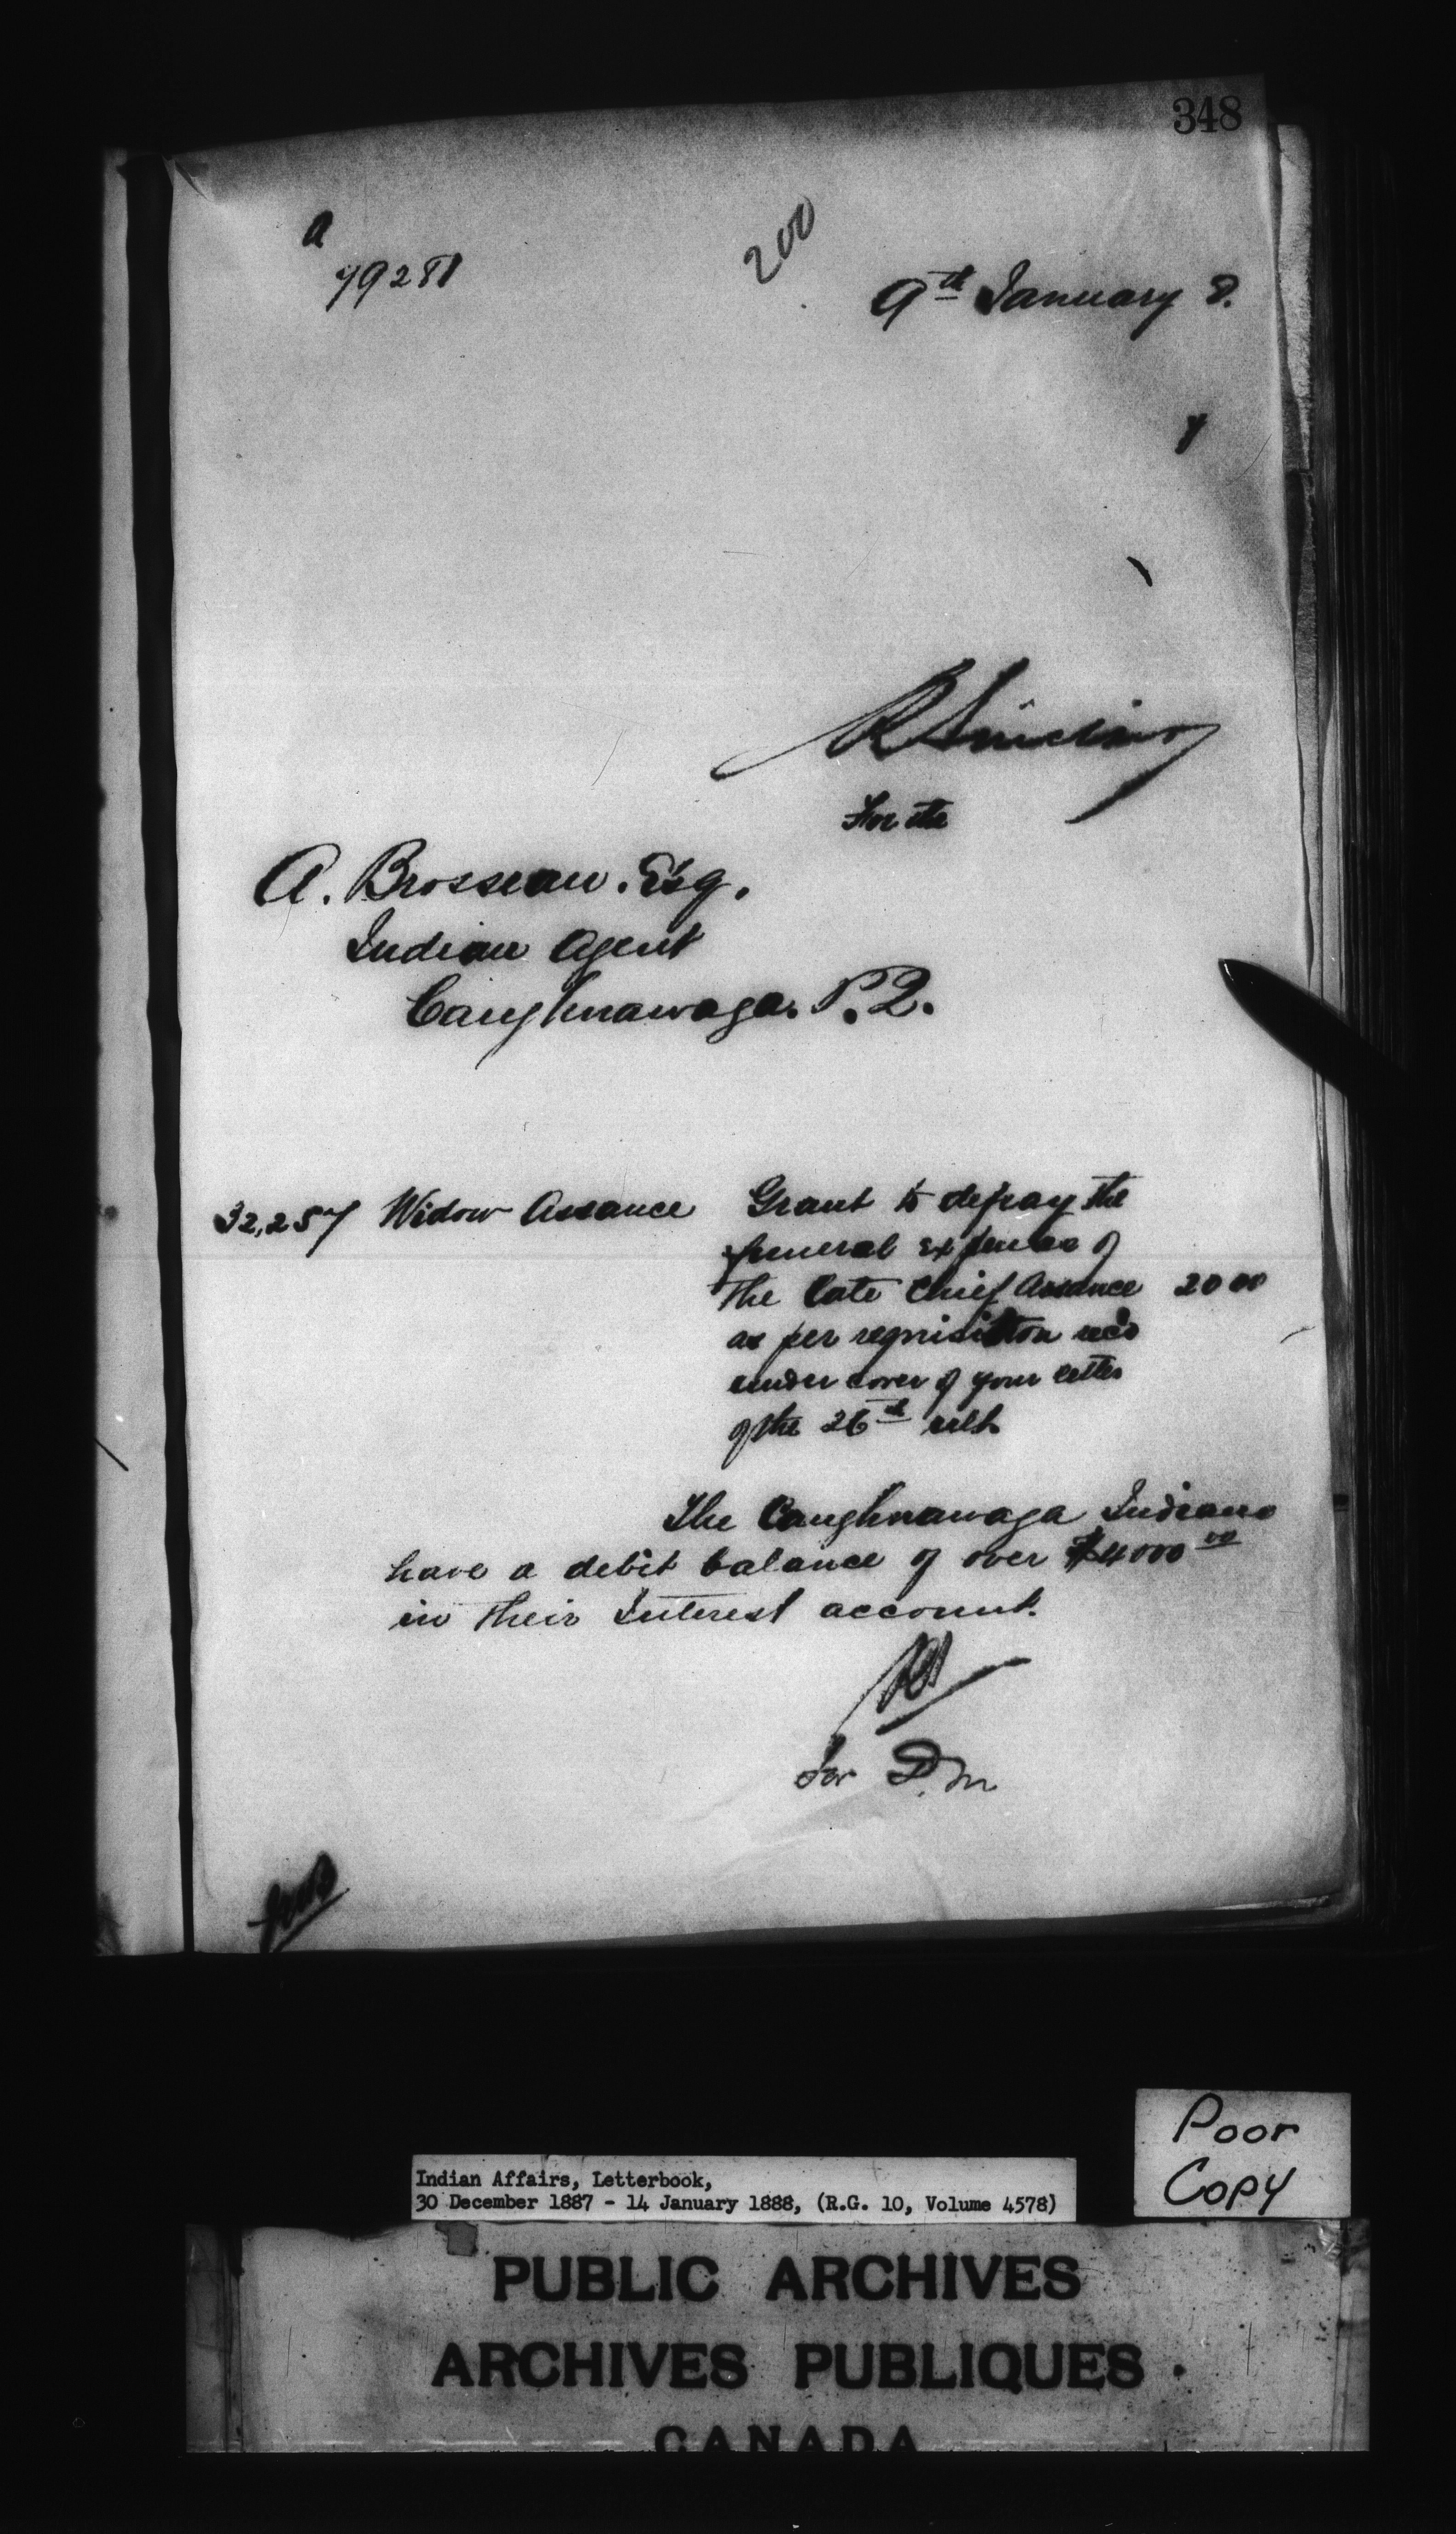 348
a
79281
200
9th January 8.
R Sinclair
For the
A. Brosseau. Esq.
Indian Agent
Caughnawaga. P.Q.
32,257 Widow Assance Grant to defray the
funeral expenses of
the late Chief Assance 20 00
as per requisition rec'd
under cover of your letter
of the 26th ult.
The Caughnawaga Indians
have a debit balance of over $4000 00
in their Interest account.
RS
for D.M
Poor
Copy
Indian Affairs, Letterbook,
30 December 1887 - 14 January 1888, (R.G. 10, Volume 4578)
PUBLIC ARCHIVES
ARCHIVES PUBLIQUES
CANADA